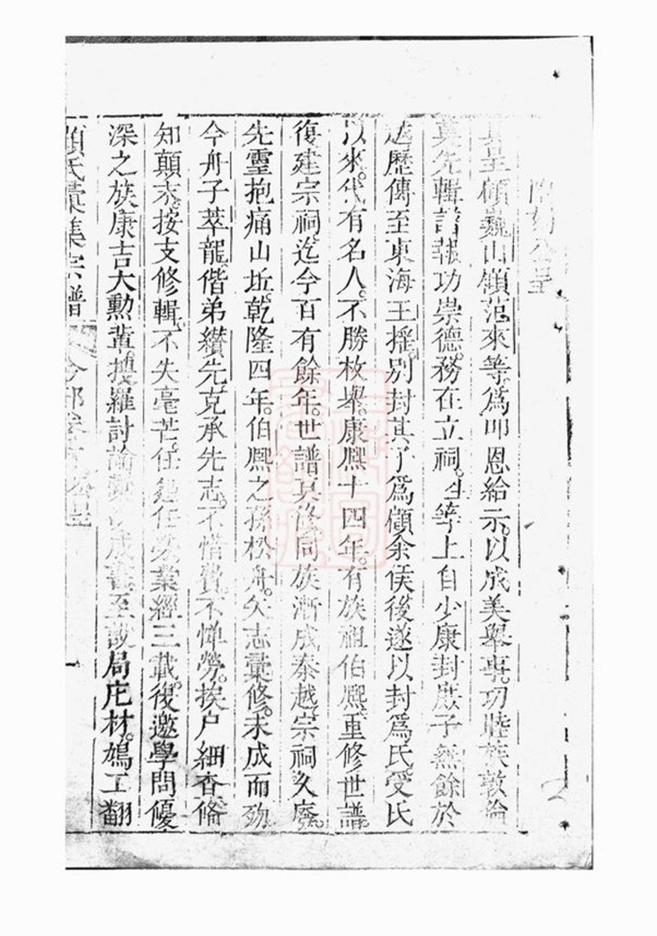 公呈
具呈顧巍山領范來等爲叩恩給示以成美舉事切睦族敦倫
莫先輯譜報功崇德務在立祠生等上自少康封庶子無餘於
越歷傳至東海王搖別封其子爲顧余侯後遂以封爲氏受氏
以來代有名人不勝枚舉康熙十四年有族祖伯熙重修世譜
復建宗祠迄今百有餘年世譜莫修同族漸成秦越宗祠久廢
先靈抱痛山坵乾隆四年伯熙之孫松舟矢志彙修未成而歿
今舟子萃龍偕弟纘先克承先志不惜費不憚勞挨户細查俻
知顛末按支修輯不失毫芒任勞業經三載後邀學問優
深之族康吉大勲輩搜羅討論成書至設局庀材鳩工翻
顧氏彙集宗譜 公呈